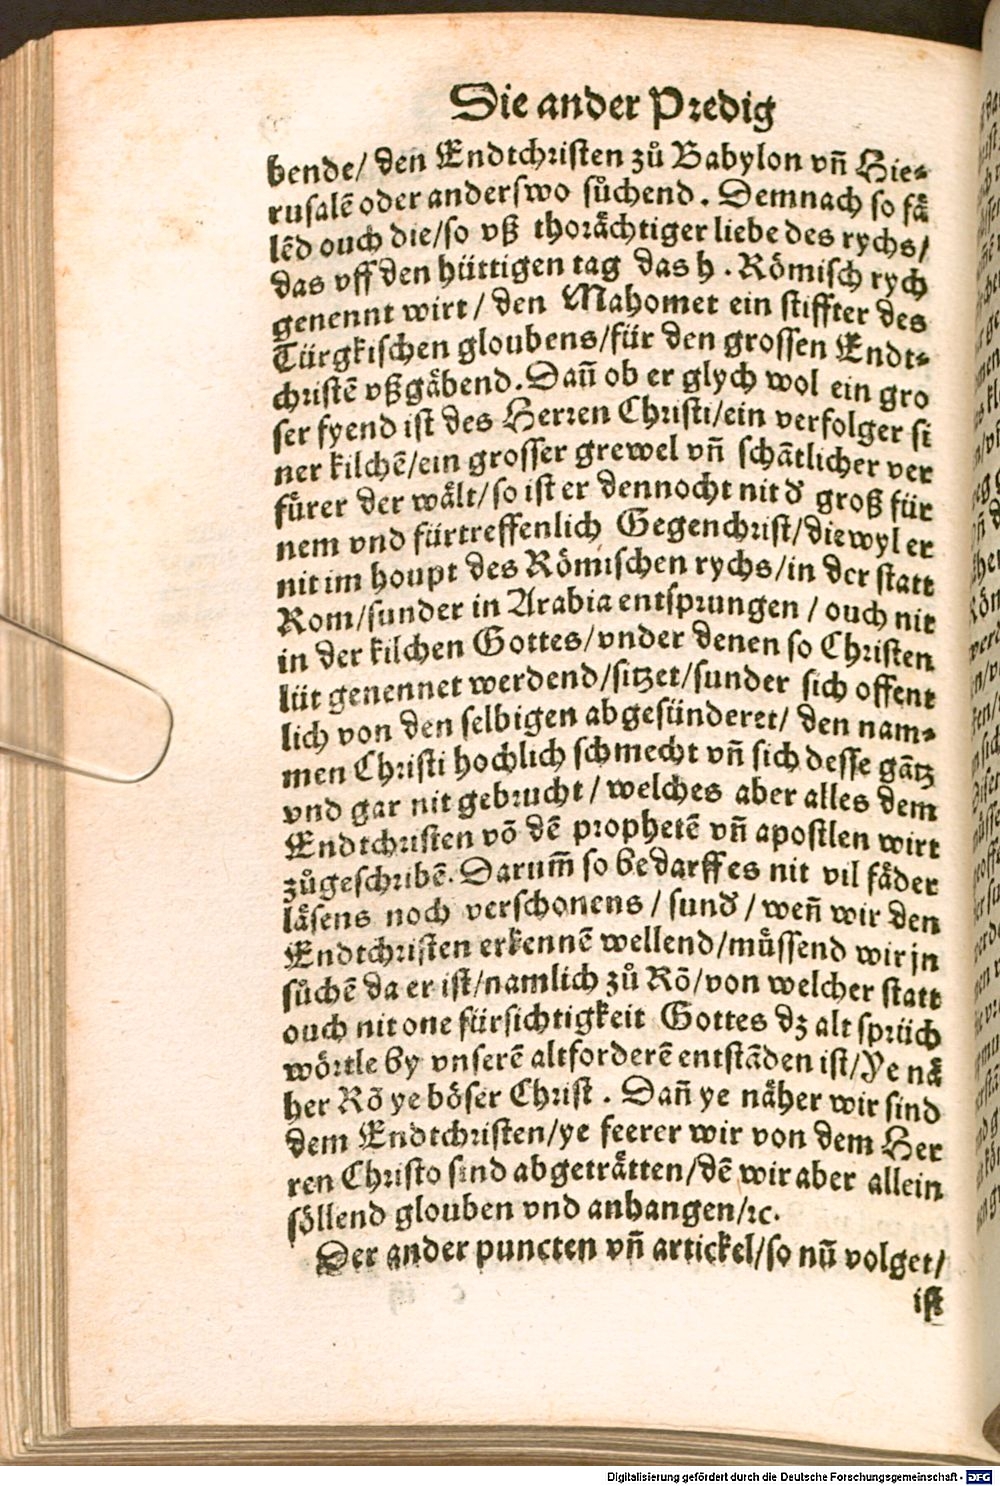 Die ander Predig
bende/ den Endtchristen zů Babylon vñ Hie⸗
rusalē oder anderswo sůchend. Demnach so fä
lēd ouch die/so vß thorächtiger liebe des rychs/
das vff den hüttigen tag das h. Römisch rych
genennt wirt/ den Mahomet ein stiffter des
Türgkischen gloubens/für den grossen Endt⸗
christē vßgäbend. Dañ ob er glych wol ein gro
ser fyend ist des Herren Christi/ein verfolger si
ner kilchē/ein grosser grewel vñ schätlicher ver
fürer der wält/so ist er dennocht nit d groß für
nem vnd fürtreffenlich Gegenchrist/diewyl er
nit im houpt des Römischen rychs/in der statt
Rom/sunder in Arabia entsprungen/ ouch nit
in der kilchen Gottes/vnder denen so Christen
lüt genennet werdend/sitzet/sunder sich offent
lich von den selbigen abgesünderet/ den nam⸗
men Christi hochlich schmecht vñ sich desse gātz
vnd gar nit gebrucht/ welches aber alles dem
Endtchristen vō dē prophetē vñ apostlen wirt
zůgeschribē. Darum̄ so bedarff es nit vil fäder
läsens noch verschonens/ sund/ weñ wir den
Endtchristen erkennē wellend/müssend wir jn
sůchē da er ist/namlich zů Rō/von welcher statt
ouch nit one fürsichtigkeit Gottes dz alt sprüch
wörtle by vnserē altforderē entstāden ist/Ye nä
her Rō ye böser Christ. Dañ ye näher wir sind
dem Endtchristen/ye feerer wir von dem Her
ren Christo sind abgetrātten/dē wir aber allein
söllend glouben vnd anhangen/ꝛc.
Der ander puncten vñ artickel/so nū volget/
ist
Digitalisierung gefördert durch die Deutsche Forschungsgemeinschaft - DFG